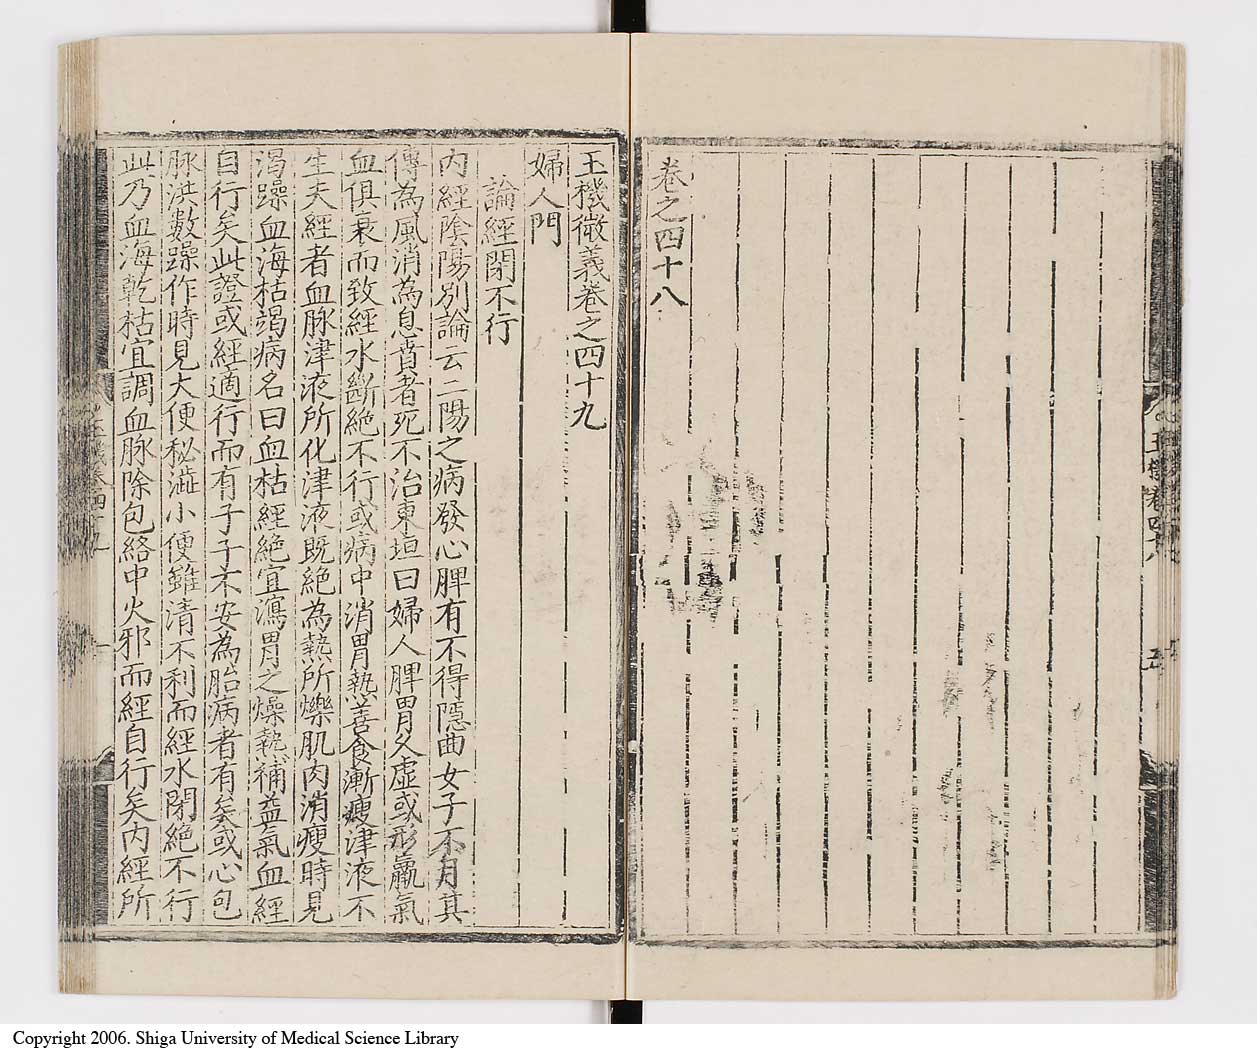 卷之四十八
玉機微義卷之四十九
婦人門
論經閉不行
內經陰陽別論云二陽之病發心脾有不得隱曲女子不月其
傳為風消為息賁者死不治東垣曰婦人脾胃久虛或形羸氣
血俱衰而致經水斷絕不行或病中消胃熱善食漸瘦津液不
生夫經者血脉津液所化津液既絕為熱所爍肌肉消瘦時見
渴躁血海枯竭病名曰血枯經絕宜瀉胃之燥熱補益氣血經
自行矣此證或經適行而有子子不安為胎病者有矣或心包
脉洪數躁作時見大便秘澁小便雖清不利而經水閉絕不行
此乃血海乾枯宜調血脉除包絡中火邪而經自行矣內經所
玉機卷四十八
五
玉機卷四十九
一
Copyright 2006. Shiga University of Medical Science Library